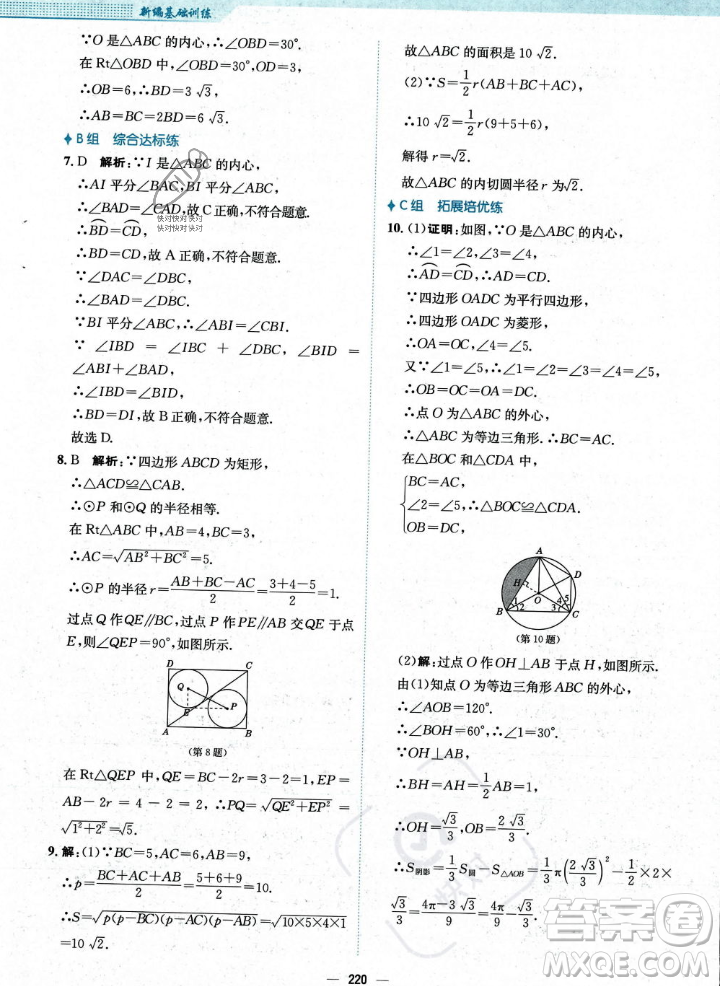 新编基础训练
∵O 是△ABC 的内心,∴∠OBD=30°.
在 Rt△OBD 中,∵∠OBD=30°,OD=3,
∴OB=6,∴BD=3√3,
∴AB=BC=2BD=6√3.
B 组 综合达标练
7. D 解析:∵I 是△ABC 的内心,
∴AI 平分∠BAC,
∴∠BAD=∠CAD,故 C 正确,不符合题意.
快对快对快对
快对快对快对
∴BD=CD,
∴BD=CD,故 A 正确,不符合题意.
∵∠DAC=∠DBC,
∴∠BAD=∠DBC.
∵BI 平分∠ABC,∴∠ABI=∠CBI.
∵ ∠IBD = ∠CBI + ∠DBC, ∠BID =
∠BAD+∠ABI,∴∠IBD=∠BID,
∴BD=DI,故 B 正确,不符合题意.
故选 D.
8. B 解析:∵四边形 ABCD 为矩形,
∴△ACD≌△CAB,
∴⊙P 和⊙Q 的半径相等.
在 Rt△ABC 中,AB=4,BC=3,
∴AC=√(AB²+BC²)=5.
∴⊙P 的半径 r=(AB+BC-AC)/2=(3+4-5)/2=1.
过点 Q 作 QE∥BC,过点 P 作 PE∥AB 交 QE 于点
E,则∠QEP=90°,如图所示.
D C
Q
E P
A B
(第 8 题)
在 Rt△QEP 中,QE=BC-2r=3-2=1,
EP=AB-2r=4-2=2,∴PQ=√(QE²+EP²)=
√(1²+2²)=√5.
9. 解:(1)∵BC=5,AC=6,AB=9,
∴p=(BC+AC+AB)/2=(5+6+9)/2=10,
∴S=√(p(p-BC)(p-AC)(p-AB))=√(10×5×4×1)
=10√2.
故△ABC 的面积是 10√2.
(2)∵S=1/2r(AB+BC+AC),
∴10√2=1/2r(9+5+6),
解得 r=√2,
故△ABC 的内切圆半径 r 为√2.
C 组 拓展培优练
10. (1)证明:如图,∵O 是△ABC 的内心,
∴∠1=∠2,∠3=∠4,
∴AD=CD,∴AD=CD.
∵四边形 OADC 为平行四边形,
∴四边形 OADC 为菱形,
∴OA=OC,∠4=∠5.
又∵∠2=∠5,∴∠2=∠4,
∴OB=OC=OA,
∴点 O 为△ABC 的外心,
∴△ABC 为等边三角形.
在△BOC 和△CDA 中,
BC=AC,
∠2=∠5,∴△BOC≌△CDA.
OB=DC,
A
H D
O
B 1 2 3 4 5 C
(第 10 题)
(2)解:过点 O 作 OH⊥AB 于点 H,如图所示.
由(1)知点 O 为等边三角形 ABC 的外心,
∴∠AOB=120°.
∴∠BOH=60°,∴∠1=30°.
∵OH⊥AB,
∴BH=AH=1/2AB=1,
∴OH=√3/3,OB=2√3/3,
∴S阴影=1/3S圆-S△AOB=1/3π(2√3/3)²-1/2×2×
√3/3=4π/9-√3/3=(4π-3√3)/9.
220
答案圈
MXQE.COM